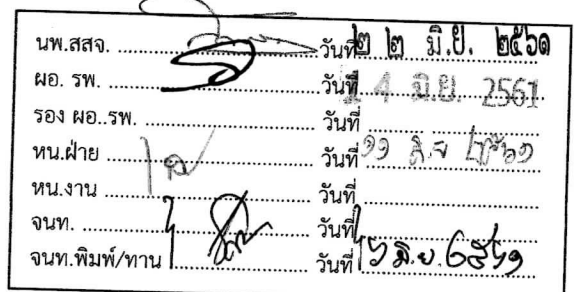 นพ.สสจ. ........ วันที่ ๒ ๒ มิ.ย. ๒๕๖๑
ผอ. รพ. ........ วันที่ 1 4 มิ.ย. 2561
รอง ผอ..รพ. ........ วันที่ ........
หน.ฝ่าย ........ วันที่ ๑๑ มิ.ย ๒๕๖๑
หน.งาน ........ วันที่ ........
จนท. ........ วันที่ ........
จนท.พิมพ์/ทาน ........ วันที่ มิ.ย. ๒๕๖๑